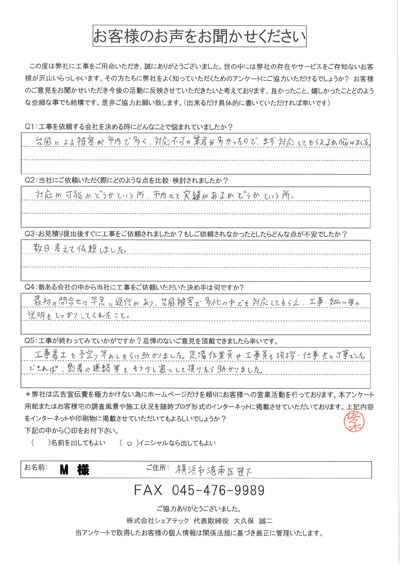 お客様のお声をお聞かせください
この度は弊社に工事をご用命いただき、誠にありがとうございました。世の中には弊社の存在やサービスをご存知ないお客
様が沢山いらっしゃいます。その方たちに弊社をよく知っていただくためのアンケートにご協力いただけるでしょうか? お客様
のご意見をお聞かせいただき今後の活動に反映させていただきたいと考えております。良かったこと、嬉しかったことどのよう
な些細な事でも結構です。是非ご協力お願い致します。(出来るだけ具体的に書いていただければ幸いです)
Q1:工事を依頼する会社を決める時にどんなことで悩まれていましたか?
台風による被害が市内で多く、対応不可の業者が多かったので、まず対応してもらえるか悩みました
Q2:当社にご依頼いただく際にどのような点を比較・検討されましたか?
対応が可能かどうかという所、市内にて実績があるかどうかという所。
Q3:お見積り提出後すぐに工事をご依頼されましたか?もしご依頼されなかったとしたらどんな点が不安でしたか?
数日考えて依頼しました。
Q4:数ある会社の中から当社に工事をご依頼いただいた決め手は何ですか?
最初の問合せに早急に返信があり、台風被害で多忙の中でも対応してもらえ、工事・支払い等の
説明もしっかりしてくれたこと。
Q5:工事が終わってみていかがですか?忌憚のないご意見を頂戴できましたら幸いです。
工事着工を予定より早めてもらい助かりました。足場作業員や工事員も挨拶・仕事共に丁寧でした
できれば、到着の連絡等をもう少し密にして頂けたら助かりました。
*弊社は広告宣伝費を極力かけない為にホームページだけを頼りにお客様への営業活動を行っております。本アンケート
用紙またはお客様宅の調査風景や施工状況を随時ブログ形式のインターネットに掲載させていただいております。上記内容
をインターネットや印刷物に掲載させていただいてもよろしいでしょうか?
下記の中から〇印をお付下さい。
( )名前を出してもよい (○)イニシャルなら出してもよい
お名前: M 様 ご住所: 横浜市港南区笹下
FAX 045-476-9989
ご協力ありがとうございました。
株式会社シェアテック 代表取締役 大久保 誠二
当アンケートで取得したお客様の個人情報は関係法規に基づき厳正に管理いたします。